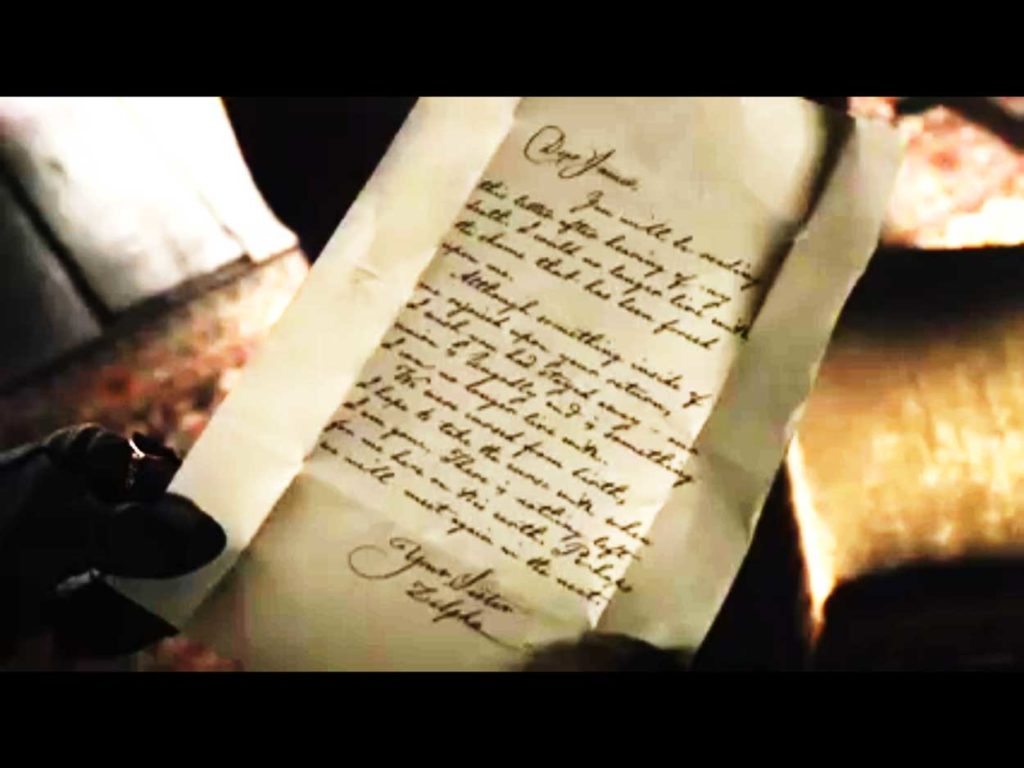 Dear James,
You will be reading
this letter after hearing of my
death. I could no longer live with
the shame that has been forced
upon me.
Although something inside of
me rejoiced upon your return,
I wish you had stayed away
I can no longer live with.
We were cursed from birth.
I hope to take the curse with
There is nothing left
for me here in this world. Perhaps
we will meet again in the next.
Your Sister
Zilpha